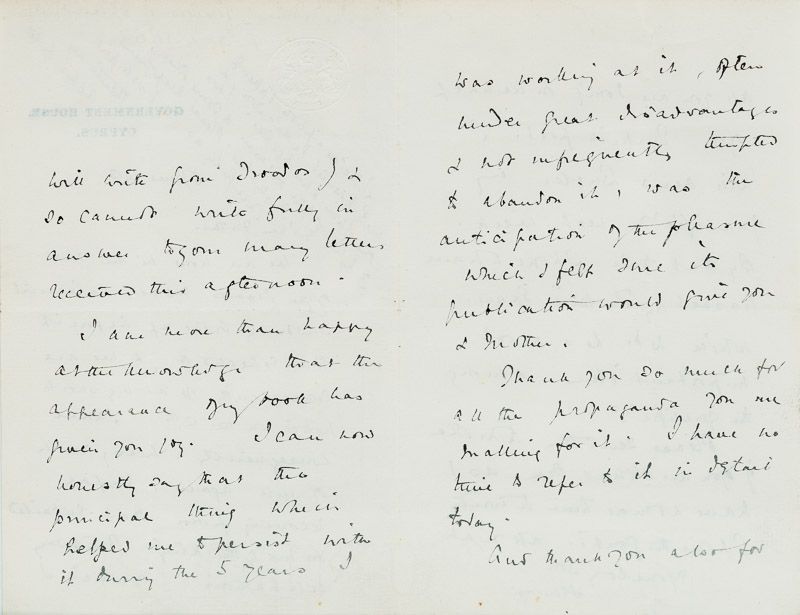 GOVERNMENT HOUSE,
CYPRUS.
will write from Troodos) &
so cannot write fully in
answer to your many letters
received this afternoon.
I am more than happy
at the knowledge that the
appearance of my book has
given you joy. I can now
honestly say that the
principal thing which
helped me to persist with
it during the 5 years I
was working at it, often
under great disadvantages
& not infrequently tempted
to abandon it, was the
anticipation of the pleasure
which I felt sure its
publication would give you
& Mother.
Thank you so much for
all the propaganda you are
making for it. I have no
time to refer to it in detail
today.
And thank you also for